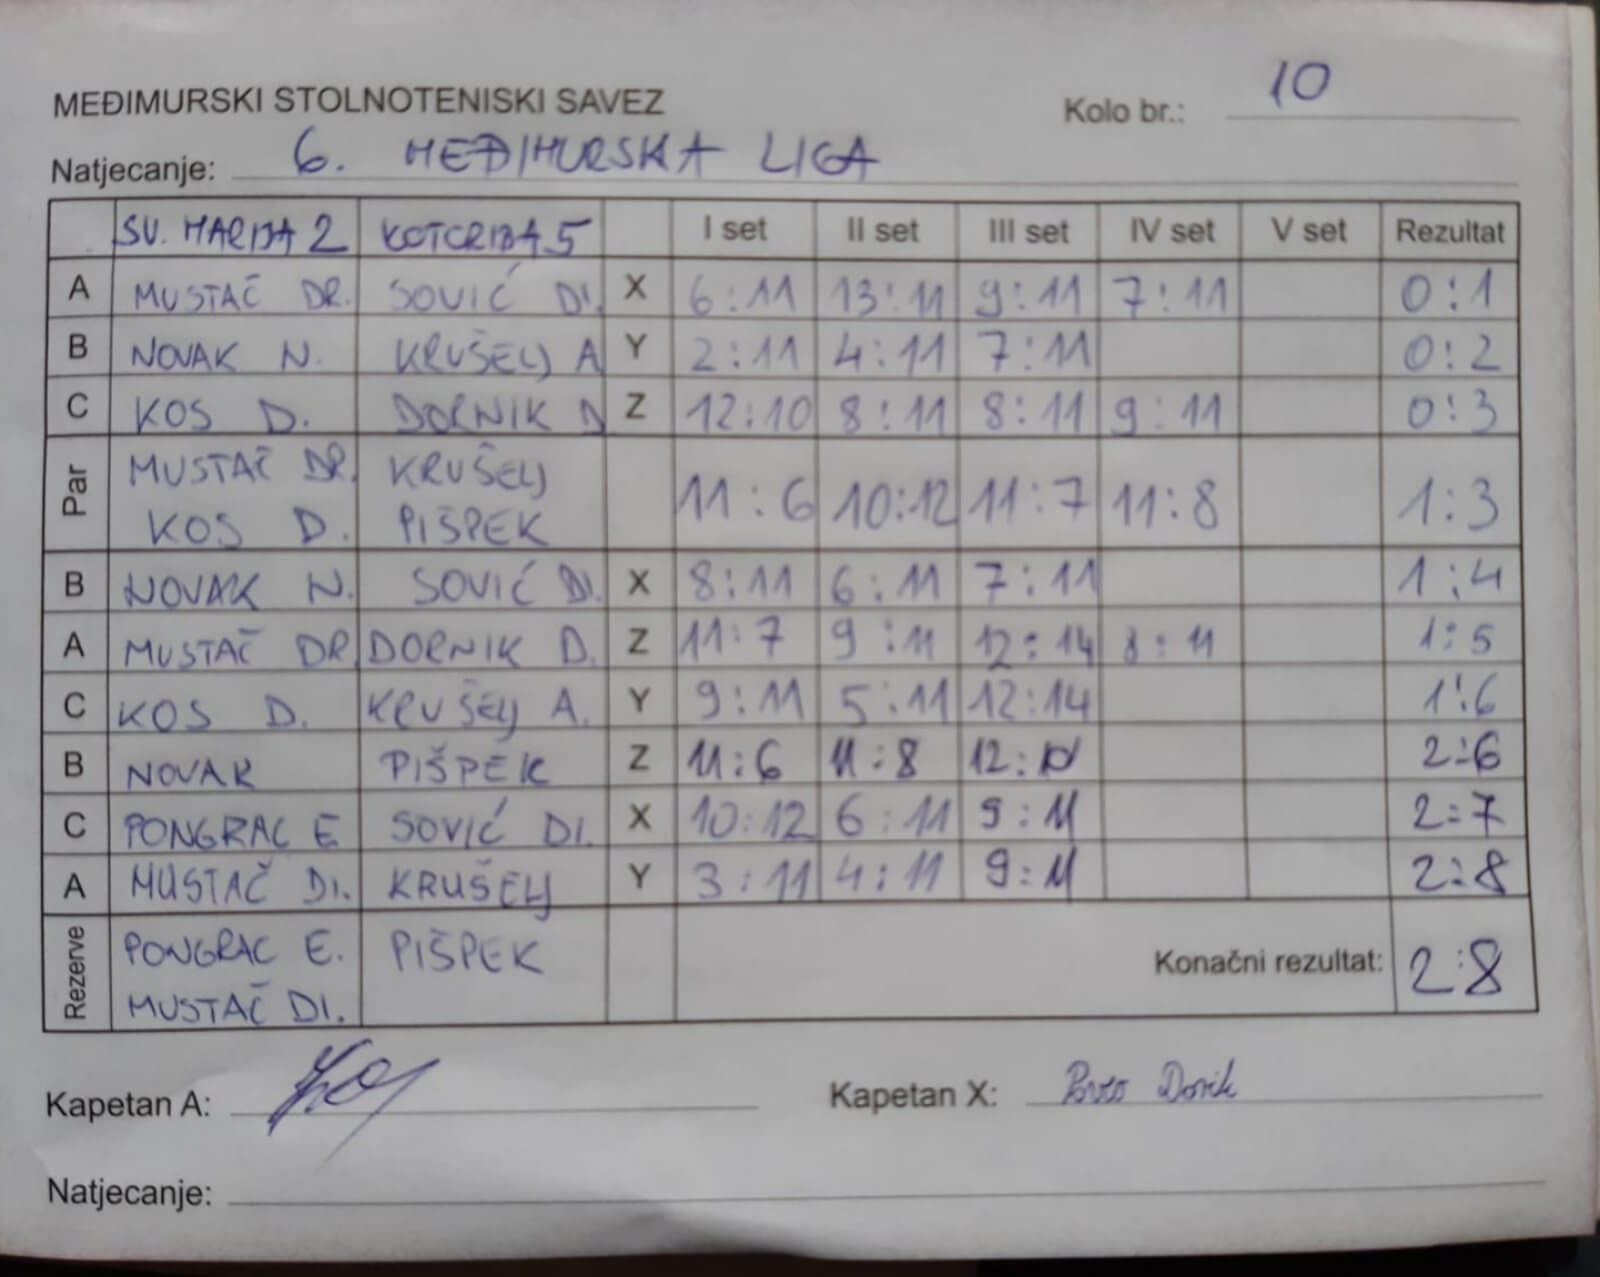 MEĐIMURSKI STOLNOTENISKI SAVEZ
Kolo br.: 10
Natjecanje: 6. MEĐIMURSKA LIGA
SV. MARIJA 2 KOTORIBA 5 I set II set III set IV set V set Rezultat
A MUSTAČ DR. SOVIĆ DI. X 6:11 13:11 9:11 7:11 0:1
B NOVAK N. KRUŠELJ A Y 2:11 4:11 7:11 0:2
C KOS D. DORNIK D Z 12:10 8:11 8:11 9:11 0:3
Par MUSTAČ DR. KRUŠELJ
KOS D. PIŠPEK 11:6 10:12 11:7 11:8 1:3
B NOVAK N. SOVIĆ DI. X 8:11 6:11 7:11 1:4
A MUSTAČ DR DORNIK D. Z 11:7 9:11 12:14 8:11 1:5
C KOS D. KRUŠELJ A. Y 9:11 5:11 12:14 1:6
B NOVAK PIŠPEK Z 11:6 11:8 12:10 2:6
C PONGRAC E SOVIĆ DI. X 10:12 6:11 9:11 2:7
A MUSTAČ DI. KRUŠELJ Y 3:11 4:11 9:11 2:8
Rezerve PONGRAC E. PIŠPEK
MUSTAČ DI.
Konačni rezultat: 2:8
Kapetan A:
Kapetan X:
Natjecanje: